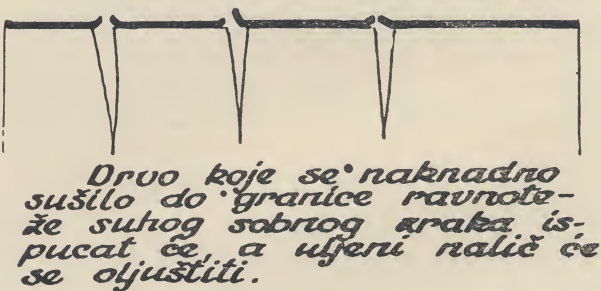 Drvo koje se naknadno
sušilo do granice ravnote-
že suhog sobnog zraka is-
pucat će, a uljeni nalič će
se oljuštiti.